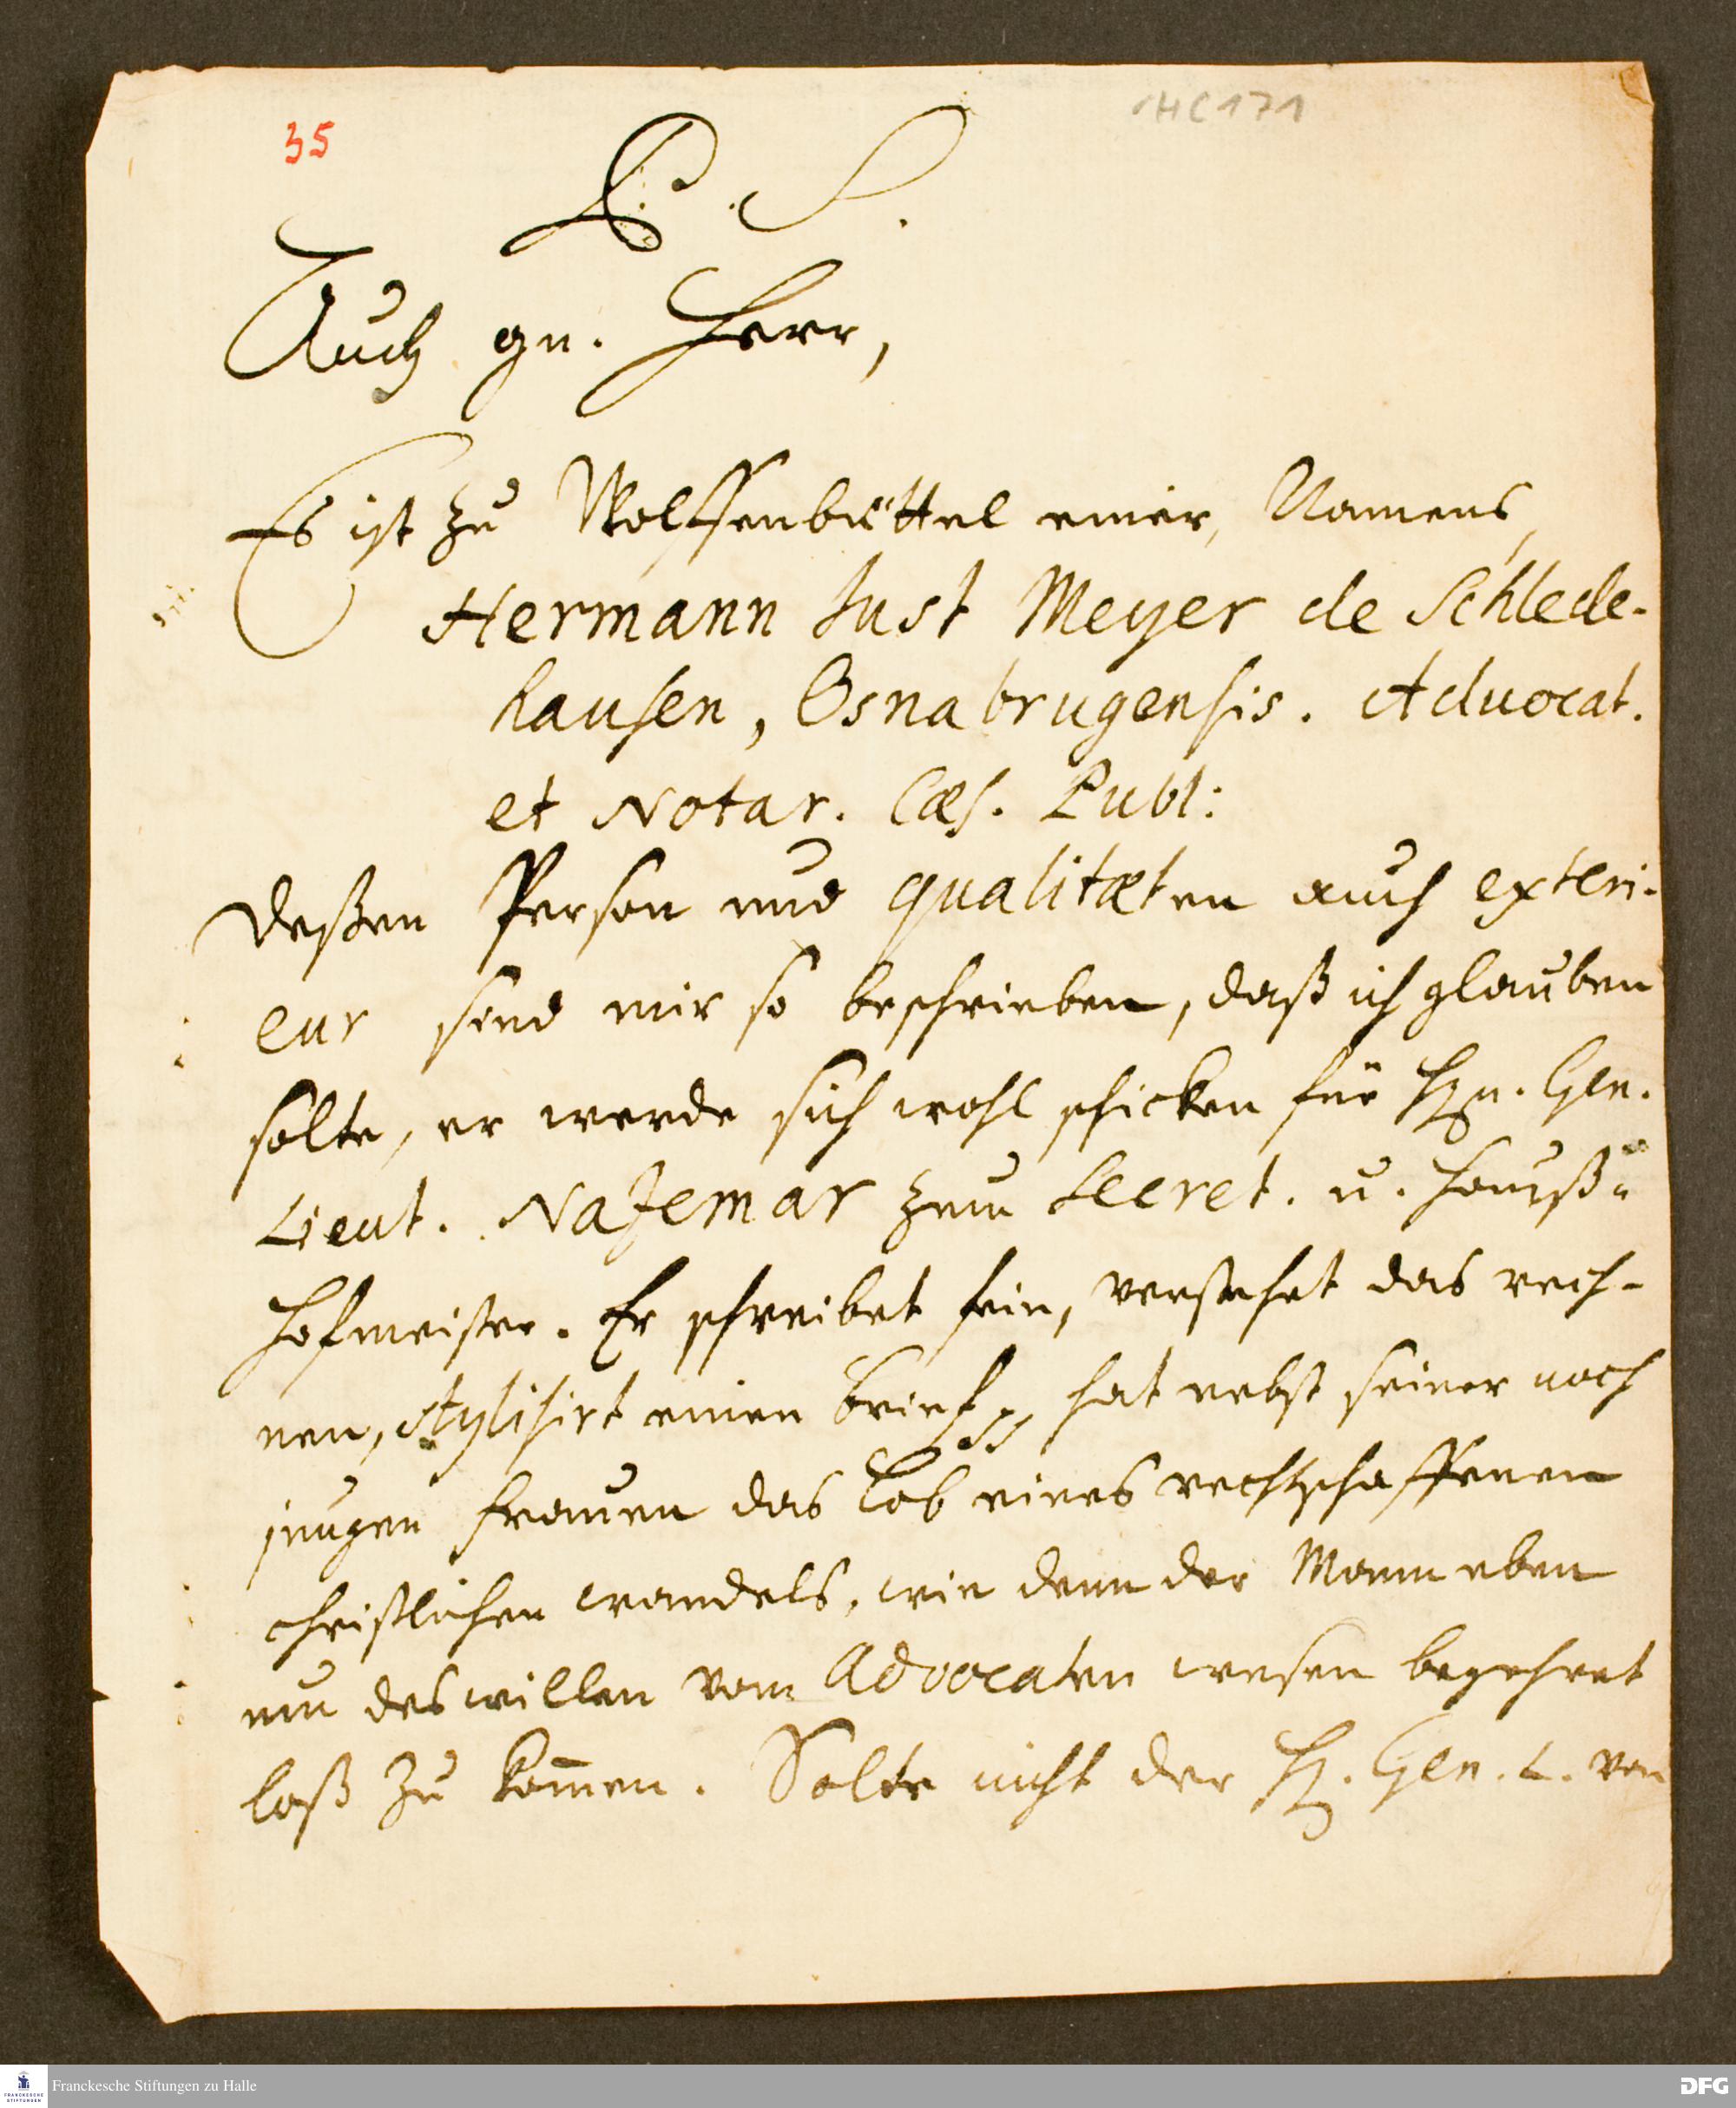 HC 171
35
P. S.
Auch gn. Herr,
Es ist zu Wolffenbüttel einer, Namens,
Hermann Just Meyer de Schlede-
hausen, Osnabrugensis. Advocat.
et Notar. Cæs. Publ:
deßen Person und qualitæten auch exteri-
eur sind mir so beschrieben, daß ich glauben
solte, er werde sich wohl schicken für Hrn. Gen.
Lieut. Nazemar zum Secret. u. Hauß-
Hofmeister. Er schreibet fein, verstehet das rech-
nen, stylisirt einen brieff, hat nebst seiner noch
jungen Frauen das Lob eines rechtschaffenen
christlichen wandels, wie denn der Mann eben
um des willen vom Advocaten wesen begehret
loß zu kom̄en. Solte nicht der H. Gen. L. von
Franckesche Stiftungen zu Halle
FRANCKESCHE
STIFTUNGEN
DFG